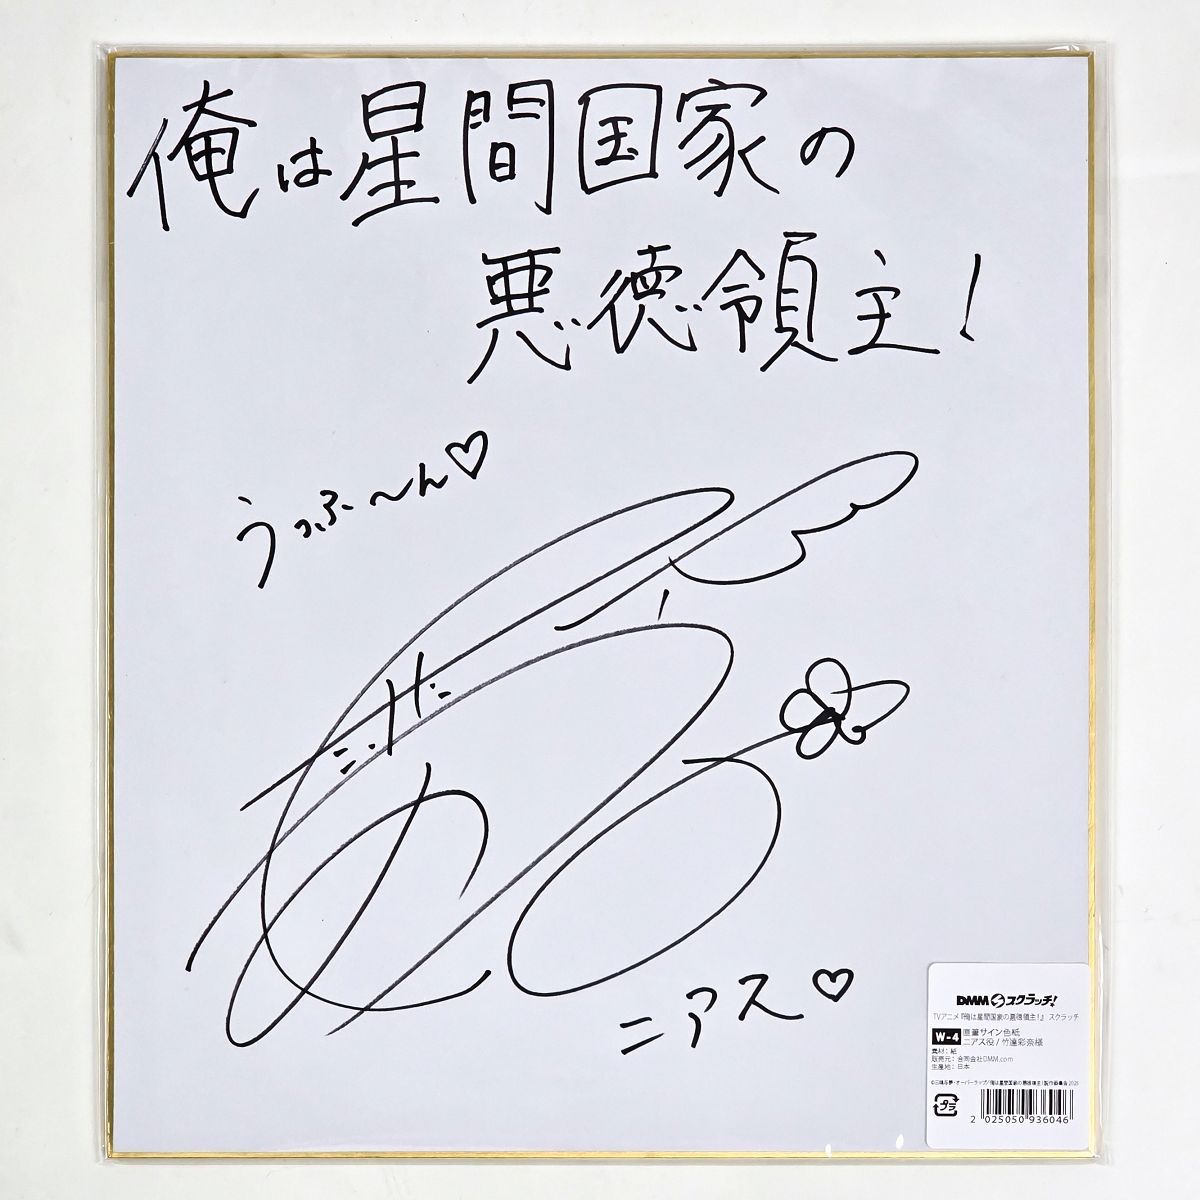 俺は星間国家の
悪徳領主!
うっふ〜ん♡
ニアス♡
DMMスクラッチ!
TVアニメ『俺は星間国家の悪徳領主!』 スクラッチ
W-4 直筆サイン色紙
ニアス役/竹達彩奈様
素材:紙
販売元:合同会社DMM.com
生産地:日本
©三嶋与夢・オーバーラップ/「俺は星間国家の悪徳領主!」製作委員会 2025
プラ
2 025050 936046